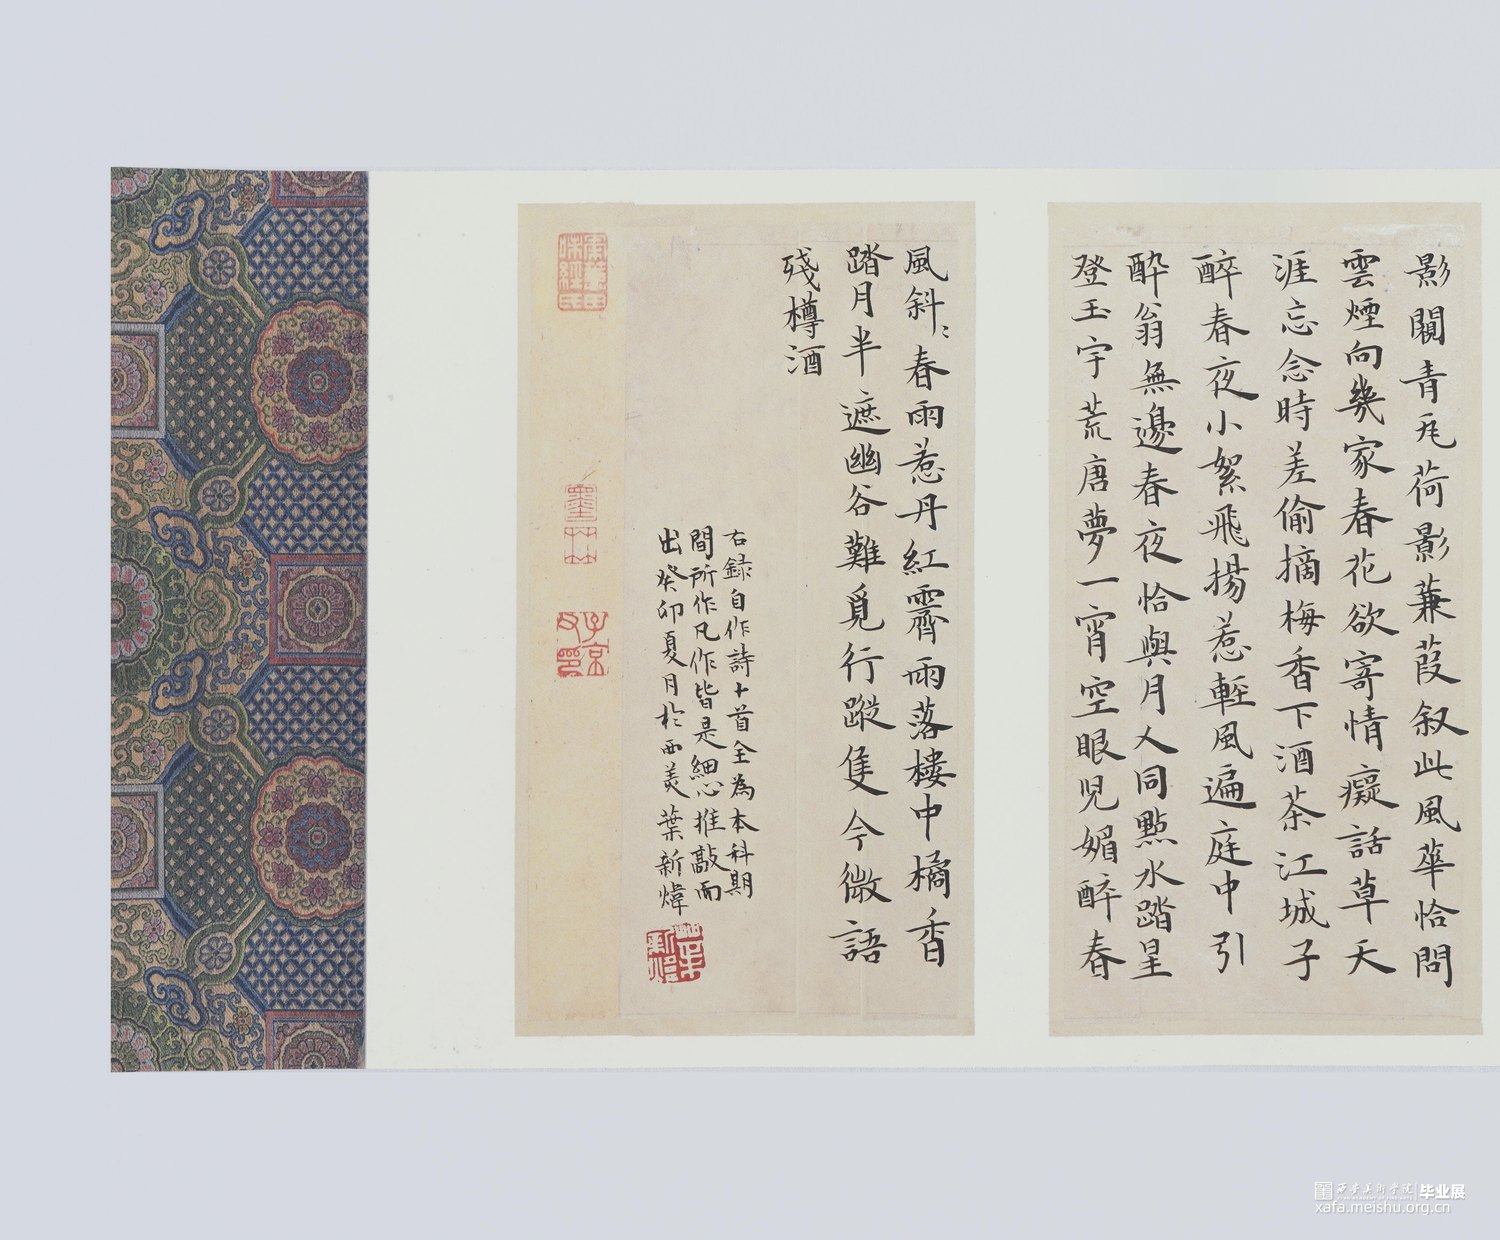 影闌青瓦荷影蒹葭叙此風華恰問
雲煙向幾家春花欲寄情癡話草天
涯忘念時差偷摘梅香下酒茶江城子
醉春夜小絮飛揚惹輕風遍庭中引
醉翁無邊春夜恰與月人同點水踏星
登玉宇荒唐夢一宵空眼兒媚醉春
風斜〻春雨惹丹紅霽雨落樓中橘香
踏月半遮幽谷難覓行蹤隻今微語
殘樽酒
右録自作詩十首全為本科期
間所作凡作皆是細心推敲而
出癸卯夏月於西美葉新煒
墨林
子京
西安美術學院 毕业展
xafa.meishu.org.cn